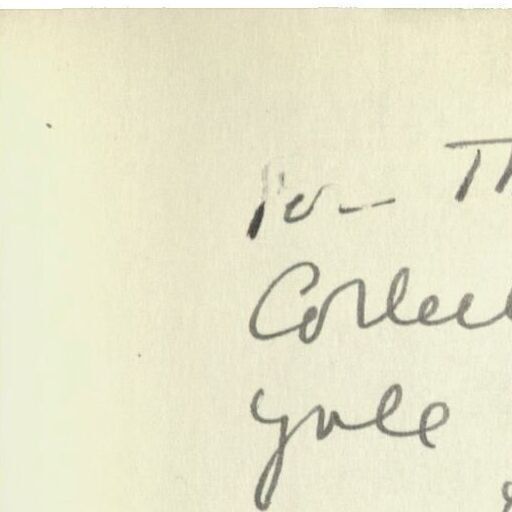 To — Th
Collect
Yale